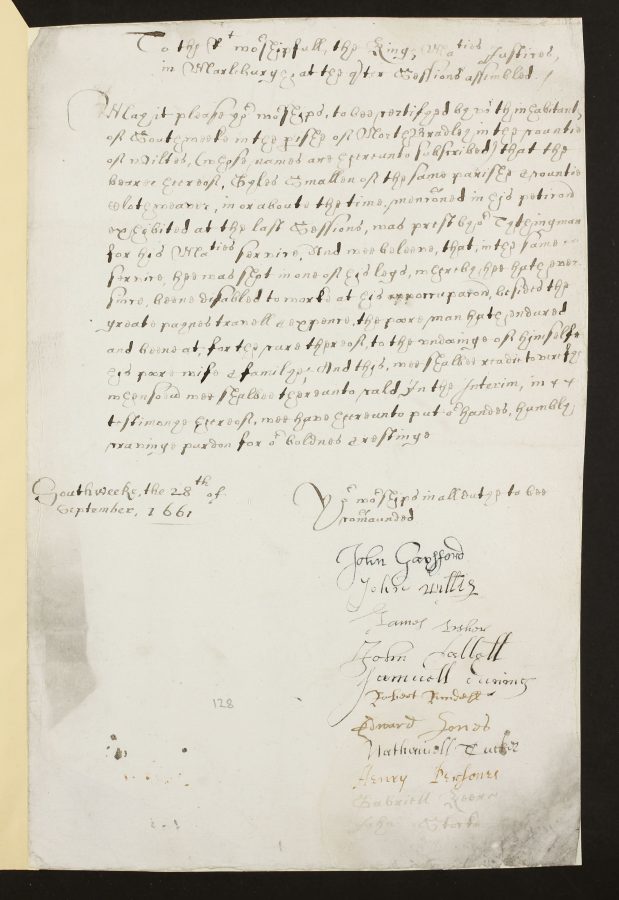 To the Rt worshipfull, the Kings Maties Justices,
in Marleburgh, at the qter Sessions assembled./
May it please yor worships, to bee certifyed by us the inhabitants
of Southweeke in the parishe of North Bradley in the countie
of Wiltes, (whose names are hereunto subscribed) that the
bearer hereof, Gyles Smallen of the same parishe & countie
clothweaver, in or about the time, menconed in his peticon
exhibited at the last Sessions, was prest by or Tythingman
for his Maties service, And wee beleeve, that, in the same
service, hee was shot in one of his legs, whereby hee hath ever
since, beene disabled to worke at his occupacon, besides the
greate paynes travell & expence, the poore man hath endured
and beene at, for the cure thereof, to the undoinge of himselfe
his poore wife & familye, And this, wee shalbee readie to verifie
whensoever wee shalbee thereunto cald, In the Interim, in
testimonye hereof, wee have hereunto put or handes, humbly
cravinge pardon for or boldnes & restinge
Southweeke, the 28th of
September, 1661
Yor worships in all dutye to bee
comaunded
John Gayfford
John Willis
James
John Sallett
Samuell
Robert
Edward Jones
Nathaniell Tucker
Henry Persons
Gabriell
John
128